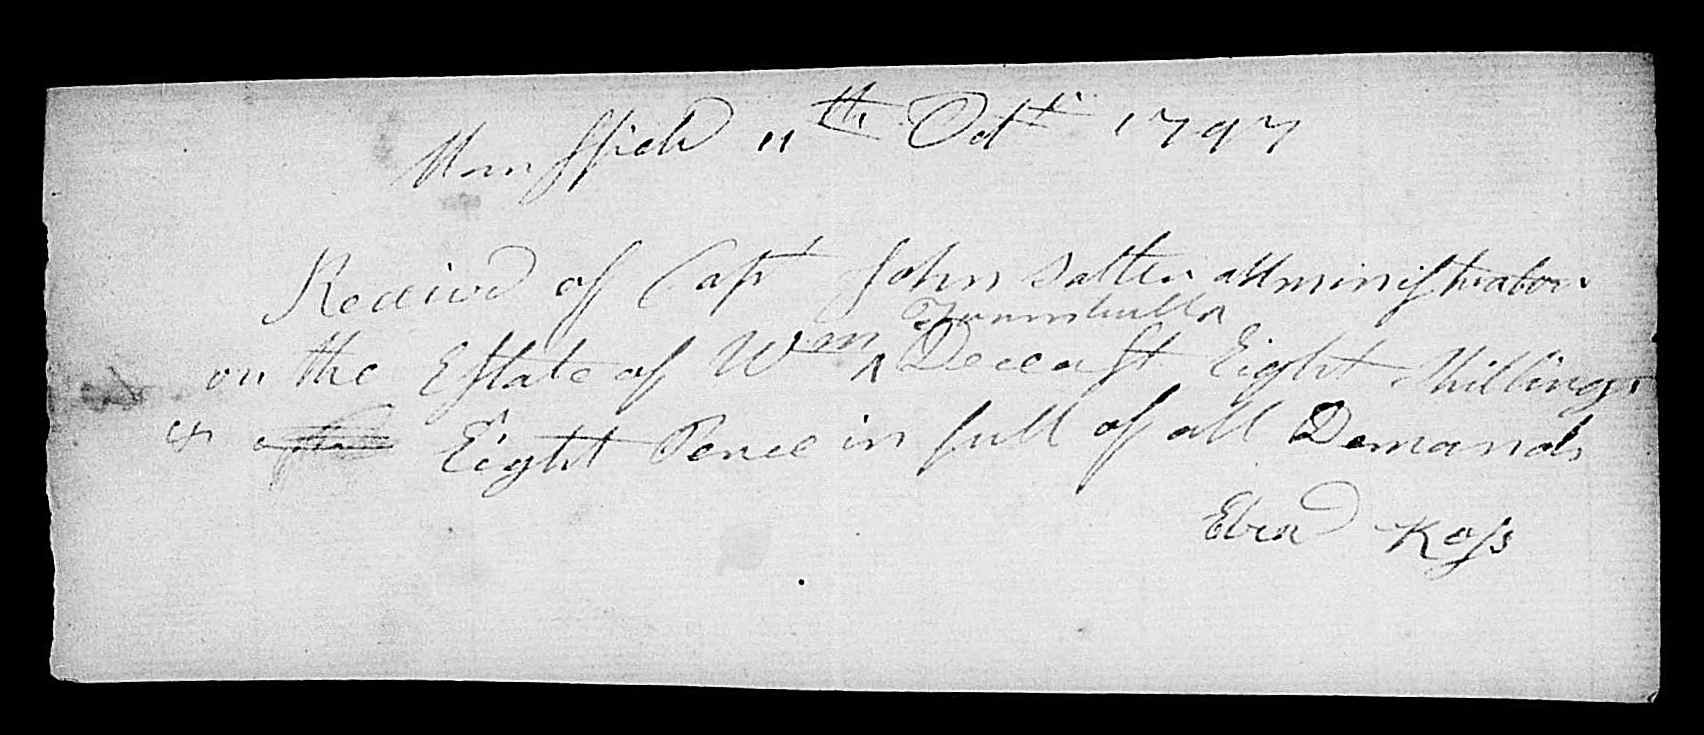 Mansfield 11th Octr 1797
Received of Capt John Salter administrator
Turnbull
on the Estate of Wm ^ Deceast Eight Shillings
& Eight Pence in full of all Demands
Ebend Koss